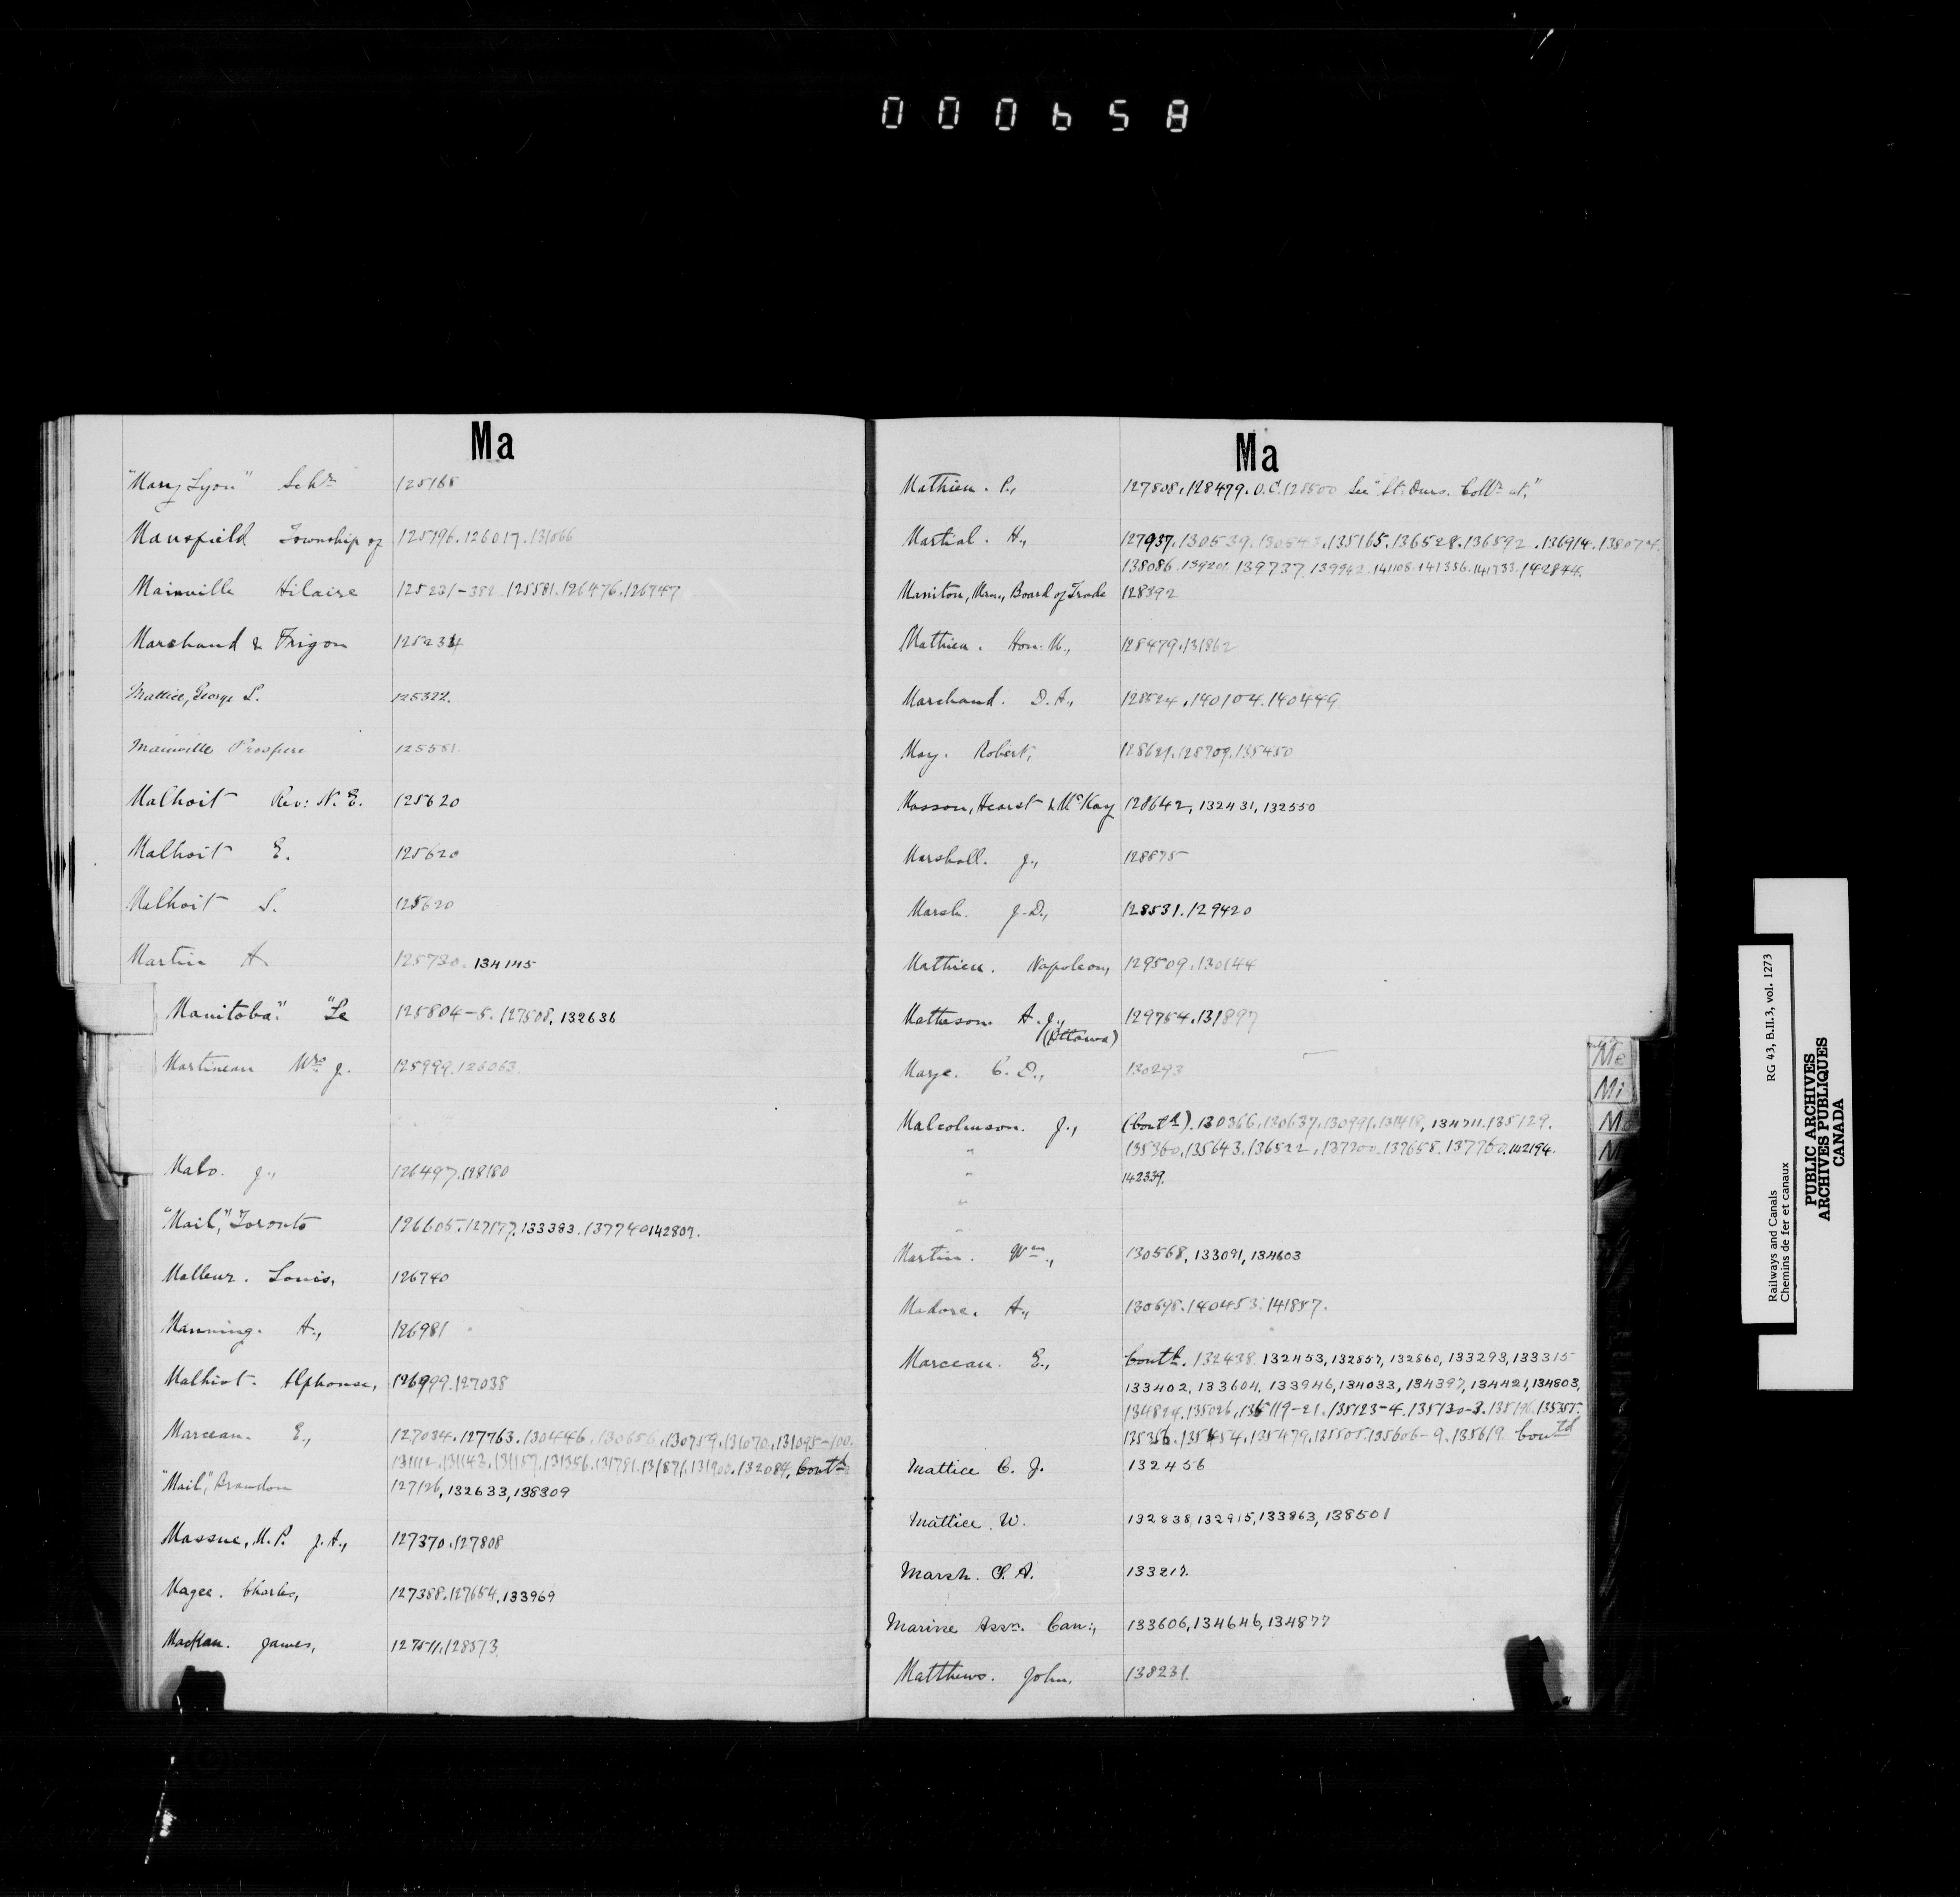 000658
Ma
"Mary Lyon" Schr 125168
Mansfield Township of 125796.126017.131066
Mainville Hilaire 125231-382.125581.126476.126747
Marchand & Frigon 125234
Mattice, George L. 125322.
Mainville Prospere 125581.
Malhoit Rev: N. E. 125620
Malhoit E. 125620
Malhoit S. 125620
Martin A 125730. 134145
Manitoba." "Le 125804-5. 127508, 132636
Martineau Wm J. 125999.126063.
Malo. J., 126497.128180
"Mail," Toronto 126605.127177.133383.137740142807.
Malleur. Louis, 126740
Manning. A., 126981
Malhiot. Alphonse, 126999.127038
Marceau. E., 127034.127763.130446.130656.130759.131070.131095-100.
131112.131143.131157.131356.131791.131871.131900.132084, Contd
"Mail", Brandon 127126, 132633, 138309
Massue, M.P. J. A., 127370.127808
Magee. Charles, 127388.127654.133969
Mackan. James, 127511.128573.
Ma
Mathieu. P., 127808.128479. O.C. 128500 See "St. Ours. Collr at."
Martial. H., 127937.130539.130543.135165.136528.136592.136914.138074.
138086.139201.139737.139942.141108.141356.141733.142844.
Manitou, Man., Board of Trade 128392
Mathieu. Hon. M., 128479.131862
Marchand. D. A., 128524.140104.140449
May. Robert, 128621.128709.135450
Masson, Hearst & McKay 128642, 132431, 132550
Marshall. J., 128875
Marsh. J. D., 128531.129420
Mathieu. Napoleon, 129509.130144
Matheson. A. J., 129754.131897
(Ottawa)
Marye. C. D., 130293
Malcolmson. J., (Contd). 130366.130637.130991.131418, 134711.135129.
" 135360.135643.136522.137200.137658.137760.142194.
" 142339.
"
"
Martin. Wm., 130568, 133091, 134603
Madore. A., 130698.140453.141887.
Marceau. E., Contd. 132438.132453, 132857, 132860, 133293, 133315
133402, 133604, 133946, 134033, 134397, 134421, 134803,
134824.135026.135119-21.135123-4.135130-3.135196.135355.
135356.135454.135479.135505.135606-9.135619. Contd
Mattice C. J. 132456
Mattice. W. 132838, 132915, 133863, 138501
Marsh. C. A. 133217.
Marine Assn. Can:, 133606, 134646, 134877
Matthews. John, 138231.
Me
Mi
Railways and Canals RG 43, B.II.3, vol. 1273
Chemins de fer et canaux
PUBLIC ARCHIVES
ARCHIVES PUBLIQUES
CANADA